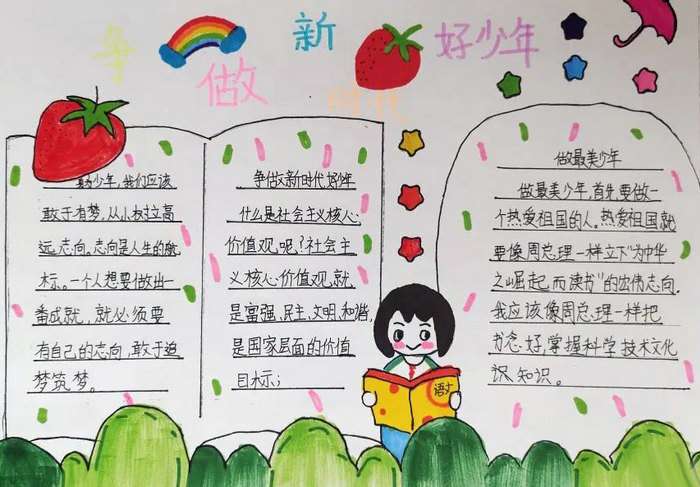 争做新时代好少年
为少年,我们应该
敢于有梦,从小树立高
远志向。志向是人生的航
标。一个人想要做出一
番成就,就必须要
有自己的志向,敢于追
梦筑梦。
争做新时代好少年
什么是社会主义核心
价值观呢?社会主
义核心价值观,就
是富强、民主、文明、和谐,
是国家层面的价值
目标;
做最美少年
做最美少年,首先,要做一
个热爱祖国的人。热爱祖国就
要像周总理一样立下"为中华
之崛起,而读书"的宏伟志向。
我应该像周总理一样把
书念好,掌握科学技术文化
识知识。
语文